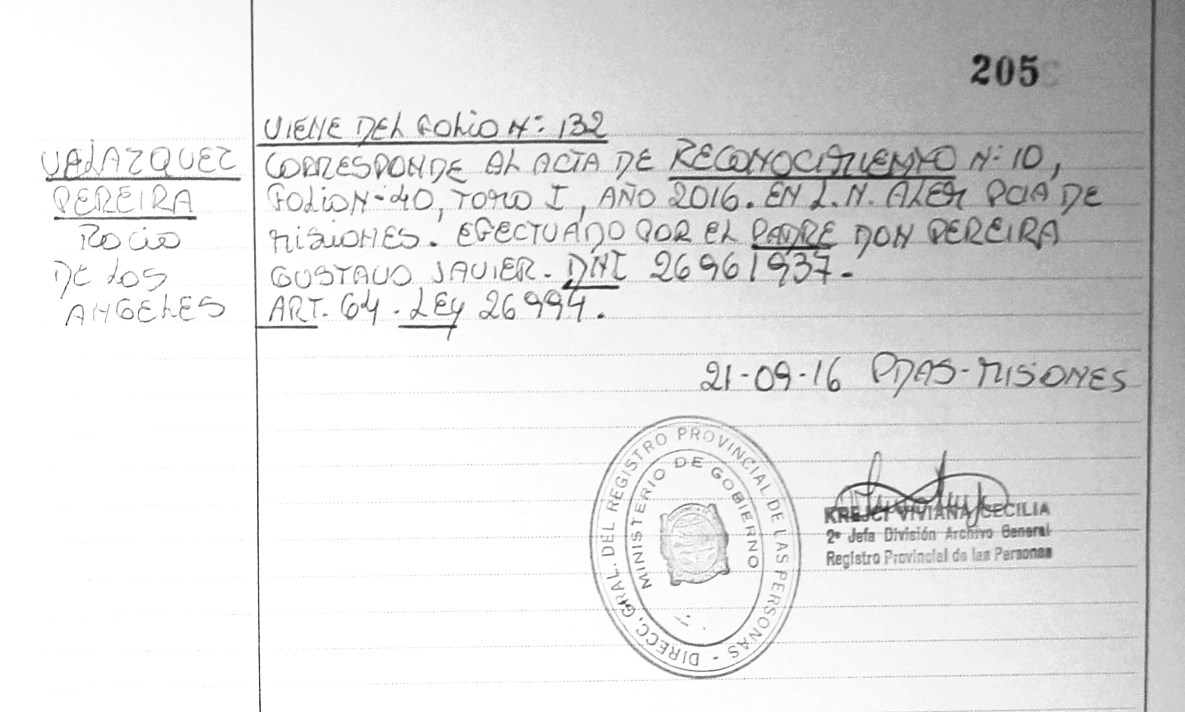 205
VIENE DEL FOLIO N: 132
VELAZQUEZ
PEREIRA
ROCIO
DE LOS
ANGELES
CORRESPONDE AL ACTA DE RECONOCIMIENTO N: 10,
FOLIO N-40, TOMO I, AÑO 2016. EN L.N. ALEM PCIA DE
MISIONES. EFECTUADO POR EL PADRE DON PEREIRA
GUSTAVO JAVIER. DNI 26961937.
ART. 64. LEY 26994.
21-09-16 PDAS-MISIONES
DIRECC. GRAL. DEL REGISTRO PROVINCIAL DE LAS PERSONAS -
MINISTERIO DE GOBIERNO
KREJCI VIVIANA CECILIA
2ª Jefa División Archivo General
Registro Provincial de las Personas